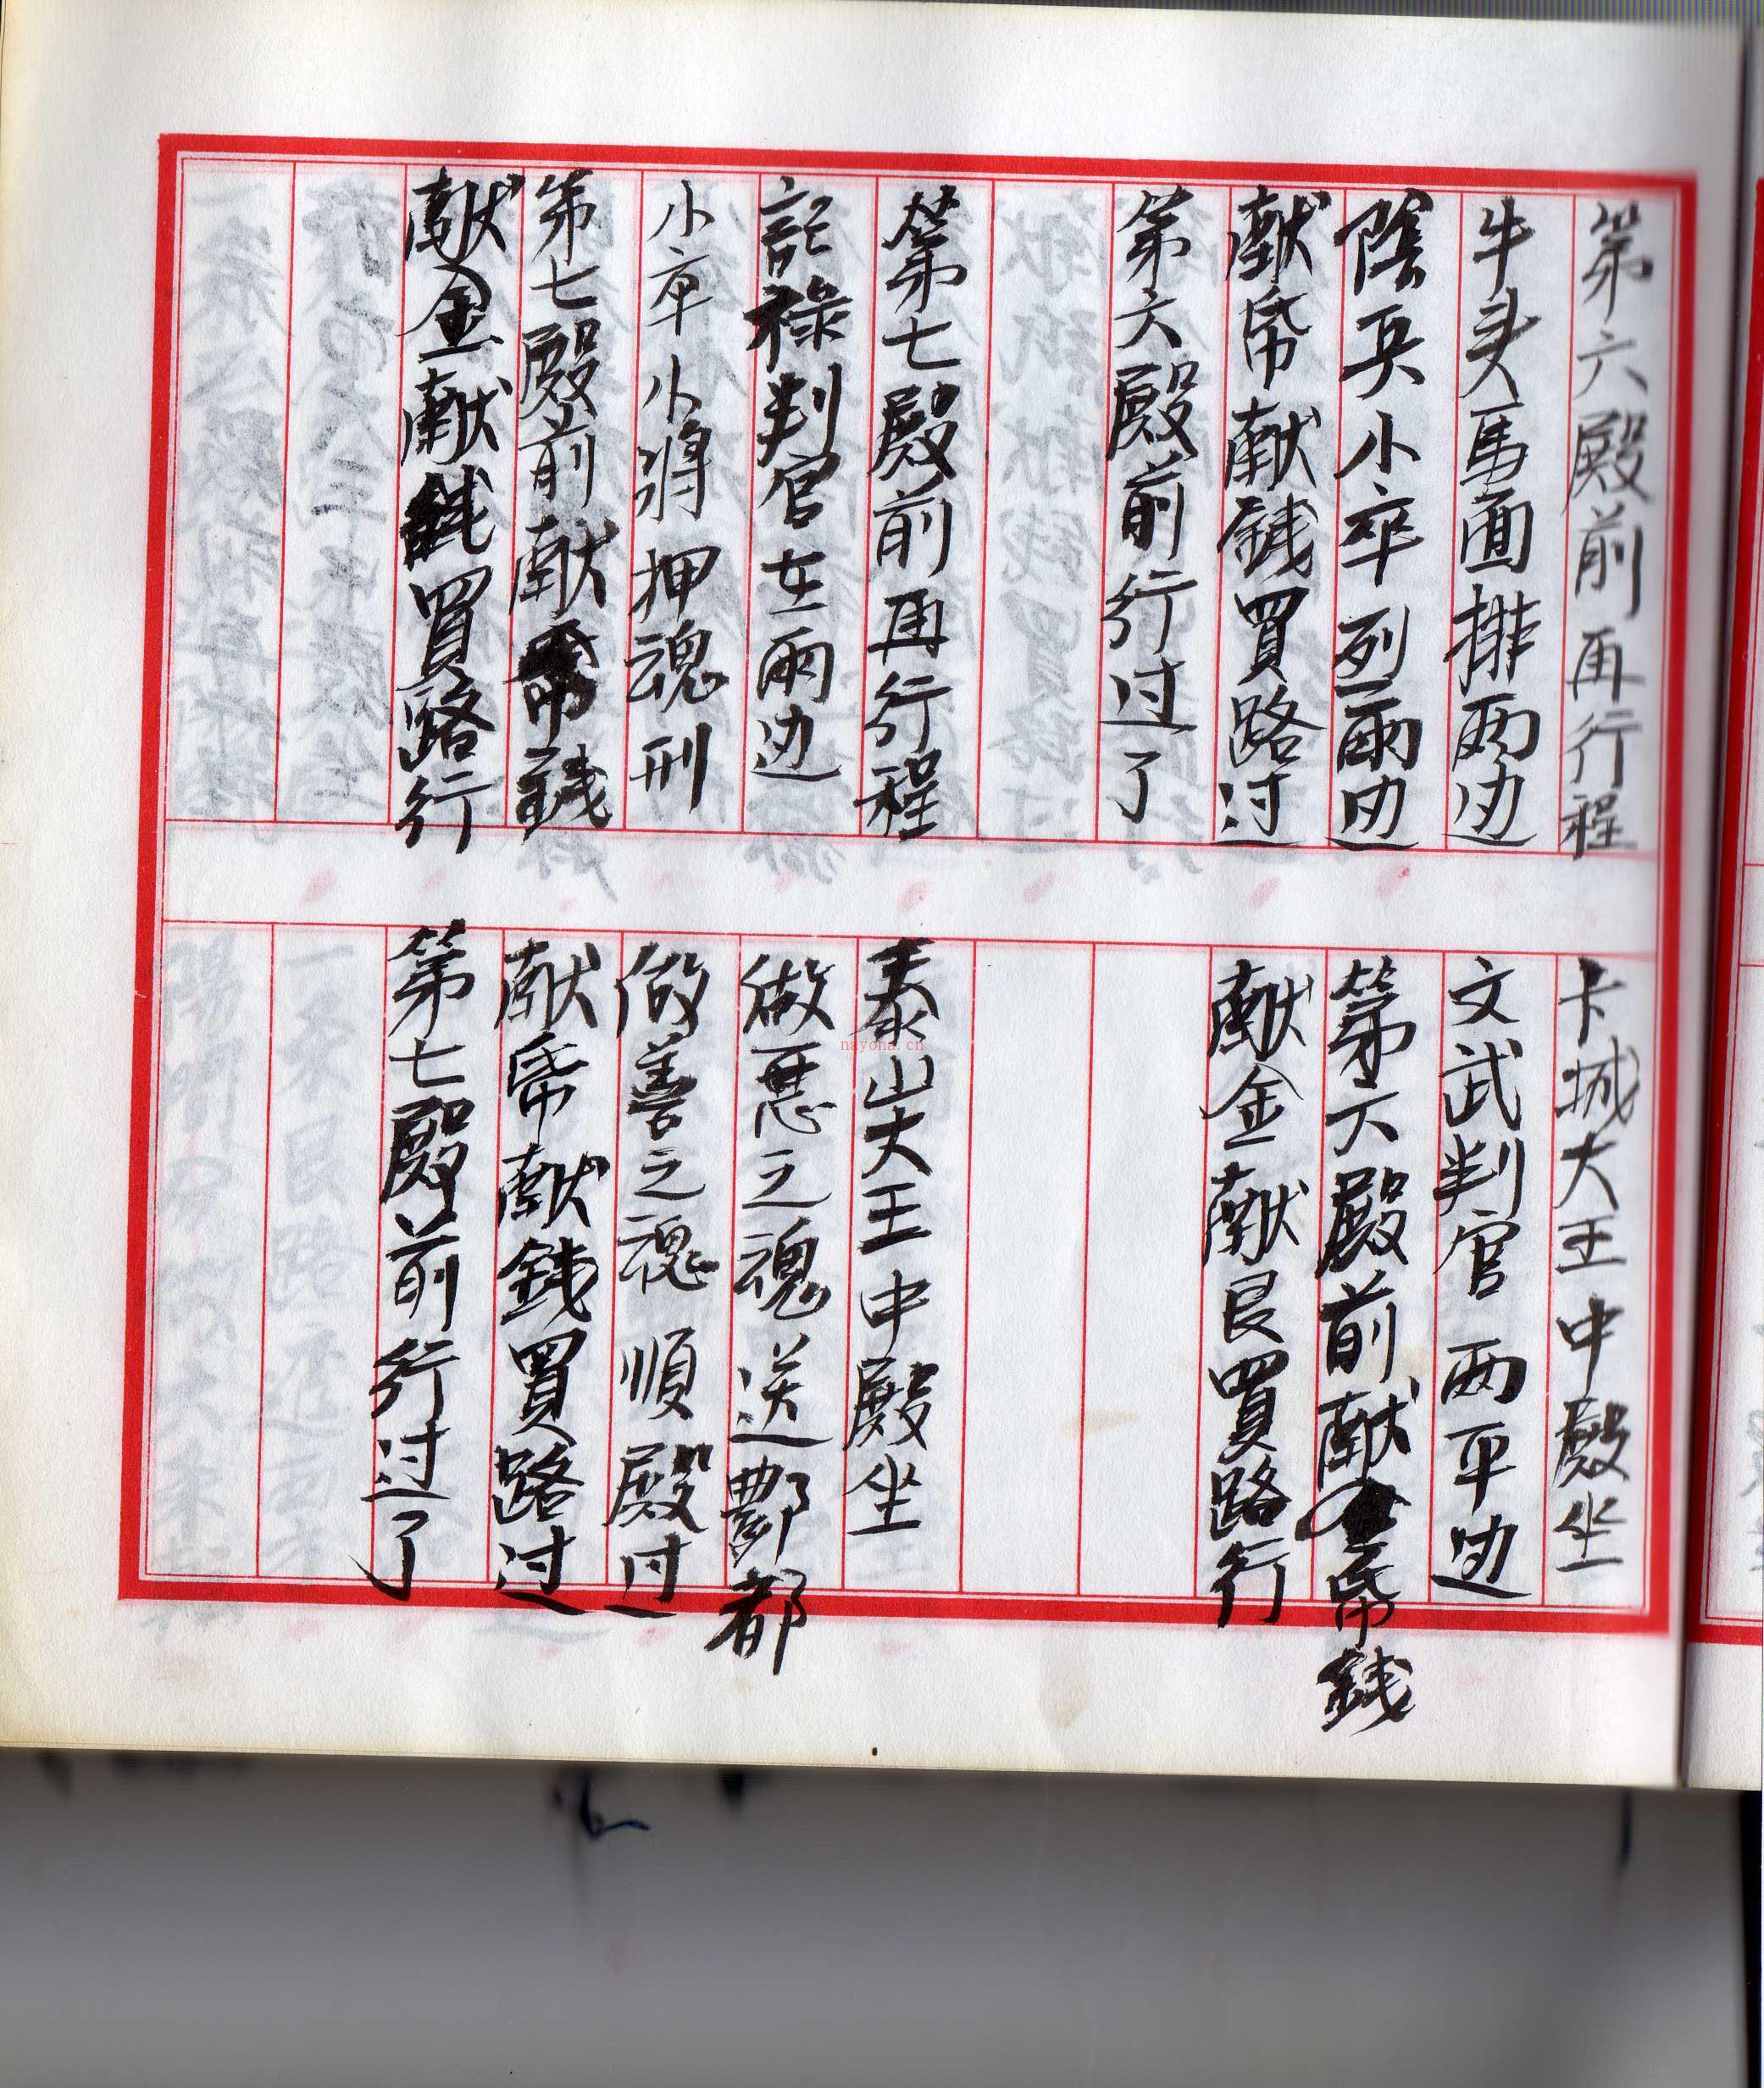 第六殿前再行程
卡城大王中殿坐
牛头馬面排两边
文武判官两平边
陰兵小卒列兩边
第六殿前献帋錢
献帋献錢買路过
献金献艮買路行
第六殿前行过了
第七殿前再行程
泰山大王中殿坐
記祿判官在兩边
做惡之魂送酆都
小卒小将押魂刑
做善之魂順殿过
第七殿前献帋錢
献帋献錢買路过
献金献錢買路行
第七殿前行过了
nayona.cn